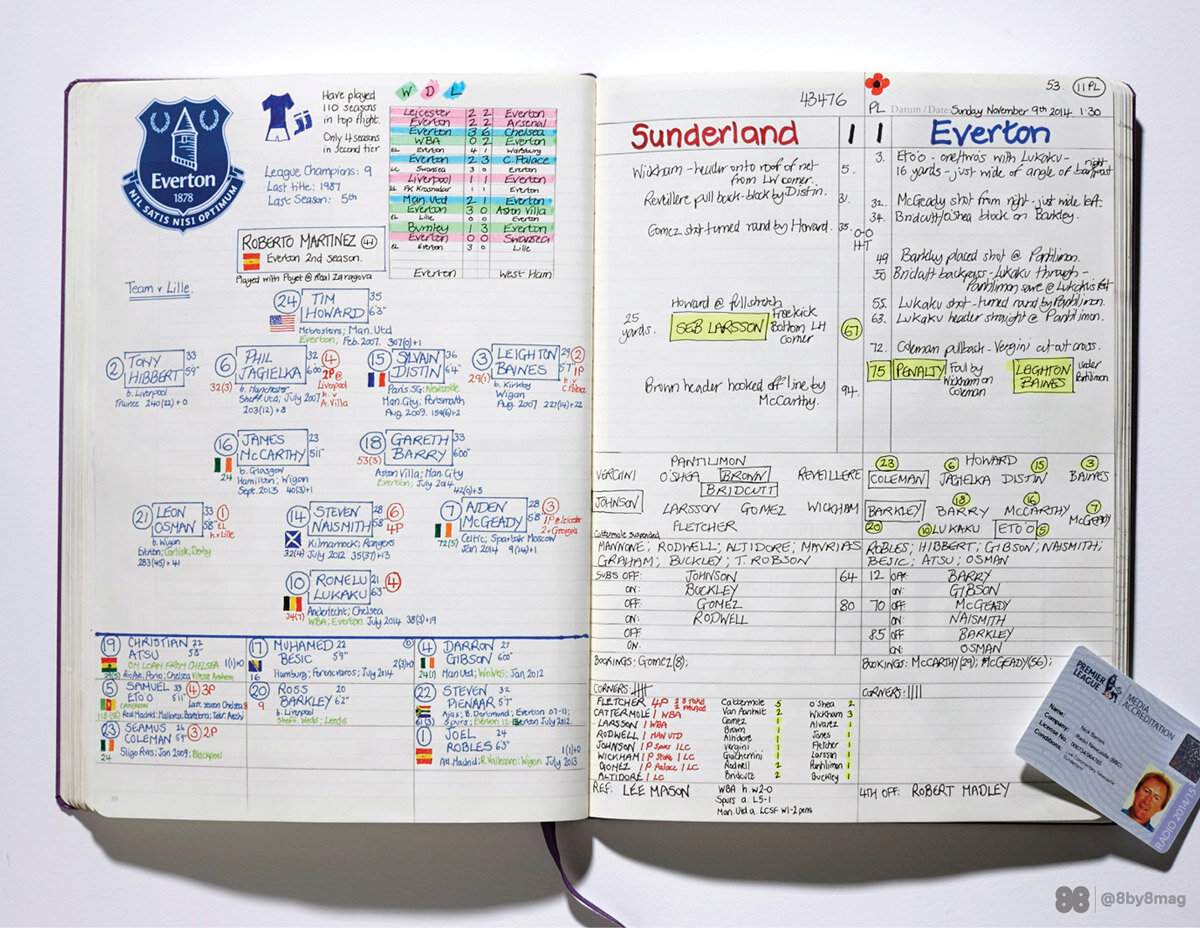 Everton
1878
NIL SATIS NISI OPTIMUM
Have played
110 seasons
in top flight.
Only 4 seasons
in second tier
League Champions: 9
Last title: 1987
Last Season: 5th
ROBERTO MARTINEZ 41
Everton 2nd season.
Played with Poyet @ Real Zaragoza
W D L
Leicester 2 2 Everton
Everton 2 2 Arsenal
Everton 3 6 Chelsea
WBA 0 2 Everton
EL Everton 4 1 Wolfsburg
Everton 2 3 C. Palace
LC Swansea 3 0 Everton
Liverpool 1 1 Everton
EL FK Krasnodar 1 1 Everton
Man. Utd 2 1 Everton
Everton 3 0 Aston Villa
EL Lille 0 0 Everton
Burnley 1 3 Everton
Everton 0 0 Swansea
EL Everton 3 0 Lille
Everton West Ham
Team v Lille.
24 TIM HOWARD 35 6'3"
Metrostars; Man. Utd
Everton; Feb. 2007. 307(0)+1
2 TONY HIBBERT 33 5'9"
b. Liverpool
Trainee 240(22)+0
6 PHIL JAGIELKA 32 6'00" 4
32(3)
2P @ Liverpool h v A. Villa
b. Manchester
Sheff. Utd; July 2007
203(12)+8
15 SYLVAIN DISTIN 36 6'4"
Paris SG; Newcastle
Man. City; Portsmouth
Aug. 2009. 154(6)+2
3 LEIGHTON BAINES 29 5'7" 2
29(1)
1P h v C Palace
b. Kirkby
Wigan
Aug. 2007 227(14)+22
16 JAMES McCARTHY 23 5'11"
24
b. Glasgow
Hamilton; Wigan
Sept. 2013 40(3)+1
18 GARETH BARRY 33 6'00"
53(3)
Aston Villa; Man. City
Everton; July 2014
42(0)+3
21 LEON OSMAN 33 5'8" 1
EL h.v Lille
b. Wigan
Everton; Carlisle, Derby
283(45)+41
14 STEVEN NAISMITH 28 5'8" 6
4P
32(4)
Kilmarnock; Rangers
July 2012 35(37)+13
7 AIDEN McGEADY 28 5'11" 3
1P @ Leicester
2 v Georgia
72(5)
Celtic; Spartak Moscow
Jan 2014 9(14)+1
10 ROMELU LUKAKU 21 6'3" 4
34(7)
Anderlecht; Chelsea
WBA; Everton July 2014 38(3)+19
19 CHRISTIAN ATSU 22 5'8"
ON LOAN FROM CHELSEA 1(1)+0
Rio Ave; Porto; Chelsea Vitesse Arnhem
17 MUHAMED BESIC 22 5'9"
2(3)+0
Hamburg; Ferencvaros; July 2014
4 DARRON GIBSON 27 6'00"
24(1)
Man Utd; Wolves; Jan 2012
5 SAMUEL ETO'O 33 5'11" 4 3P
CAMEROON last season Chelsea
Real Madrid; Mallorca; Barcelona; Inter; Anzhi
20 ROSS BARKLEY 20 6'2"
9
b. Liverpool
Sheff. Weds; Leeds
22 STEVEN PIENAAR 32 5'7"
61(3)
Ajax; B. Dortmund; Everton 07-11;
Spurs; Everton July 2012.
23 SEAMUS COLEMAN 26 5'4" 3 2P
24
Sligo Rvrs; Jan 2009; Blackpool
1 JOEL ROBLES 24 6'3"
1(1)+0
Atl. Madrid; R. Vallecano; Wigan July 2013
50
53 11 PL
43476
PL Datum / Date: Sunday November 9th 2014 1:30
Sunderland 1 1 Everton
Wickham - header onto roof of net from LW corner. 5.
Reveillere pull back - block by Distin. 31.
Gomez shot turned round by Howard. 35.
0-0
HT
25 yards.
Howard @ full stretch
SEB LARSSON
Freekick
Bottom LH
Corner
67
Brown header hooked off line by McCarthy. 94.
3. Eto'o - one/twos with Lukaku -
16 yards - just wide of angle of right bar/post
32. McGeady shot from right - just wide left.
34. Bridcutt/O'Shea block on Barkley.
49 Barkley placed shot @ Pantilimon.
50 Bridcutt backpass - Lukaku through -
Pantilimon save @ Lukaku's feet
55. Lukaku shot - turned round by Pantilimon.
63. Lukaku header straight @ Pantilimon.
72. Coleman pullback - Vergini cut out cross.
75 PENALTY Foul by Wickham on Coleman LEIGHTON BAINES under Pantilimon
PANTILIMON
VERGINI O'SHEA BROWN REVEILLERE
BRIDCUTT
JOHNSON LARSSON GOMEZ WICKHAM
FLETCHER
HOWARD
23 COLEMAN 6 JAGIELKA 15 DISTIN 3 BAINES
BARKLEY 20 18 BARRY 16 McCARTHY 7 McGEADY
10 LUKAKU ETO'O 5
Cattermole suspended
MANNONE; RODWELL; ALTIDORE; MAVRIAS
GRAHAM; BUCKLEY; T. ROBSON
ROBLES; HIBBERT; GIBSON; NAISMITH;
BESIC; ATSU; OSMAN
SUBS OFF: JOHNSON 64
ON: BUCKLEY
OFF: GOMEZ 80
ON: RODWELL
OFF:
ON:
12 OFF: BARRY
ON: GIBSON
70 OFF: McGEADY
ON: NAISMITH
85 OFF: BARKLEY
ON: OSMAN
BOOKINGS: GOMEZ(8);
BOOKINGS: McCARTHY(29); McGEADY(56);
CORNERS
CORNERS:
FLETCHER 4P 2 @ Stoke 2 @ Palace
CATTERMOLE 1 WBA
LARSSON 1 WBA
RODWELL 1 MAN UTD
JOHNSON 1P Spurs 1LC
WICKHAM 1P Stoke 1LC
GOMEZ 1P Palace 1LC
ALTIDORE 1 LC
Cattermole 5
Van Aanholt 2
Gomez 1
Brown 1
Altidore 1
Vergini 1
Giaccherini 1
Rodwell 2
Bridcutt 2
O'Shea 2
Wickham 3
Alvarez 1
Jones 1
Fletcher 1
Larsson 1
Pantilimon 1
Buckley 1
REF: LEE MASON
WBA h. W2-0
Spurs a. L5-1
Man. Utd a. LCSF W1-2 pens
4TH OFF: ROBERT MADLEY
PREMIER LEAGUE
MEDIA ACCREDITATION
Name: Nick Barnes
Company: Radio Newcastle (BBC)
License No.
Conditions: Live Commentary Newcastle
Sunderland
RADIO 2014/15
88 | @8by8mag